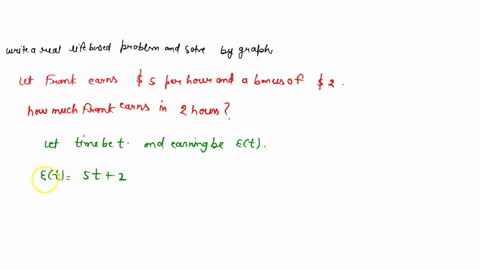 write a real life based problem and solve by graph.
Let Frank earns $5 per hour and a bonus of $2.
how much Frank earns in 2 hours?
Let time be t. and earning be E(t).
E(t) = 5t+2